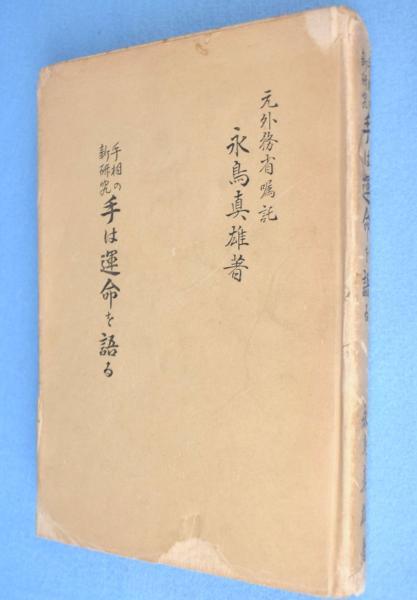 元外務省嘱託
永鳥真雄著
手相の
新研究
手は運命を語る
新研究
手は運命を語る